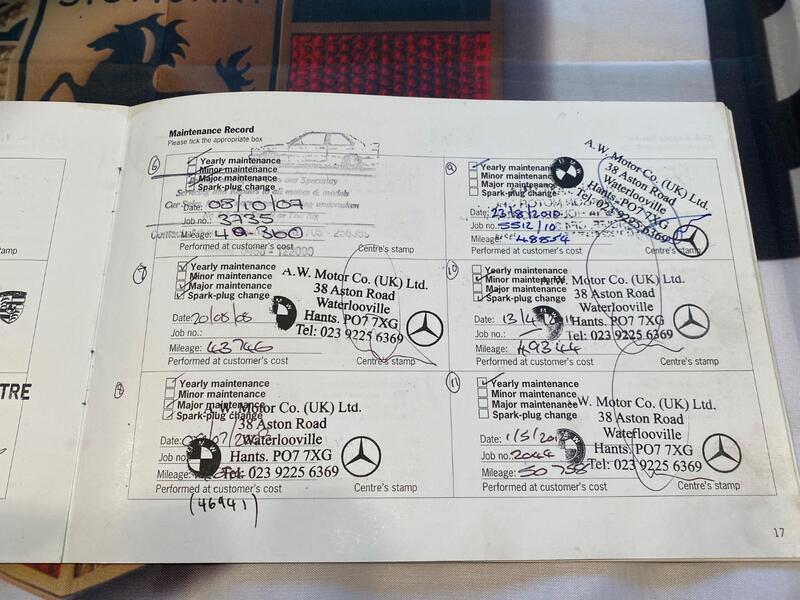 STUTTGART
Maintenance Record
Please tick the appropriate box
6
Yearly maintenance
Minor maintenance
Major maintenance
Spark-plug change
our Speciality
to all makes & models
undertaken
Date: 08/10/07
Job no.: 3735
Mileage: 40360
Performed at customer's cost
Centre's stamp
7
Yearly maintenance
Minor maintenance
Major maintenance
Spark-plug change
A.W. Motor Co. (UK) Ltd.
38 Aston Road
Waterlooville
Hants. PO7 7XG
Tel: 023 9225 6369
Date: 20/08/08
Job no.:
Mileage: 43746
Performed at customer's cost
Centre's stamp
8
Yearly maintenance
Minor maintenance
Major maintenance
Spark-plug change
A.W. Motor Co. (UK) Ltd.
38 Aston Road
Waterlooville
Hants. PO7 7XG
Tel: 023 9225 6369
Date:
Job no.:
BMW
Mileage:
Performed at customer's cost
Centre's stamp
(46941)
9
Yearly maintenance
Minor maintenance
Major maintenance
Spark-plug change
A.W. Motor Co. (UK) Ltd.
38 Aston Road
Waterlooville
Hants. PO7 7XG
Tel: 023 9225 6369
BMW
Date: 23/8/2010
Job no.: 5512/10
Mileage: 48554
Performed at customer's cost
Centre's stamp
10
Yearly maintenance
Minor maintenance
Major maintenance
Spark-plug change
A.W. Motor Co. (UK) Ltd.
38 Aston Road
Waterlooville
Hants. PO7 7XG
Tel: 023 9225 6369
Date:
Job no.:
Mileage: 49344
Performed at customer's cost
Centre's stamp
11
Yearly maintenance
Minor maintenance
Major maintenance
Spark-plug change
A.W. Motor Co. (UK) Ltd.
38 Aston Road
Waterlooville
Hants. PO7 7XG
Tel: 023 9225 6369
Date: 1/5/2012
Job no.: 2044
Mileage: 50755
Performed at customer's cost
Centre's stamp
TRE
17